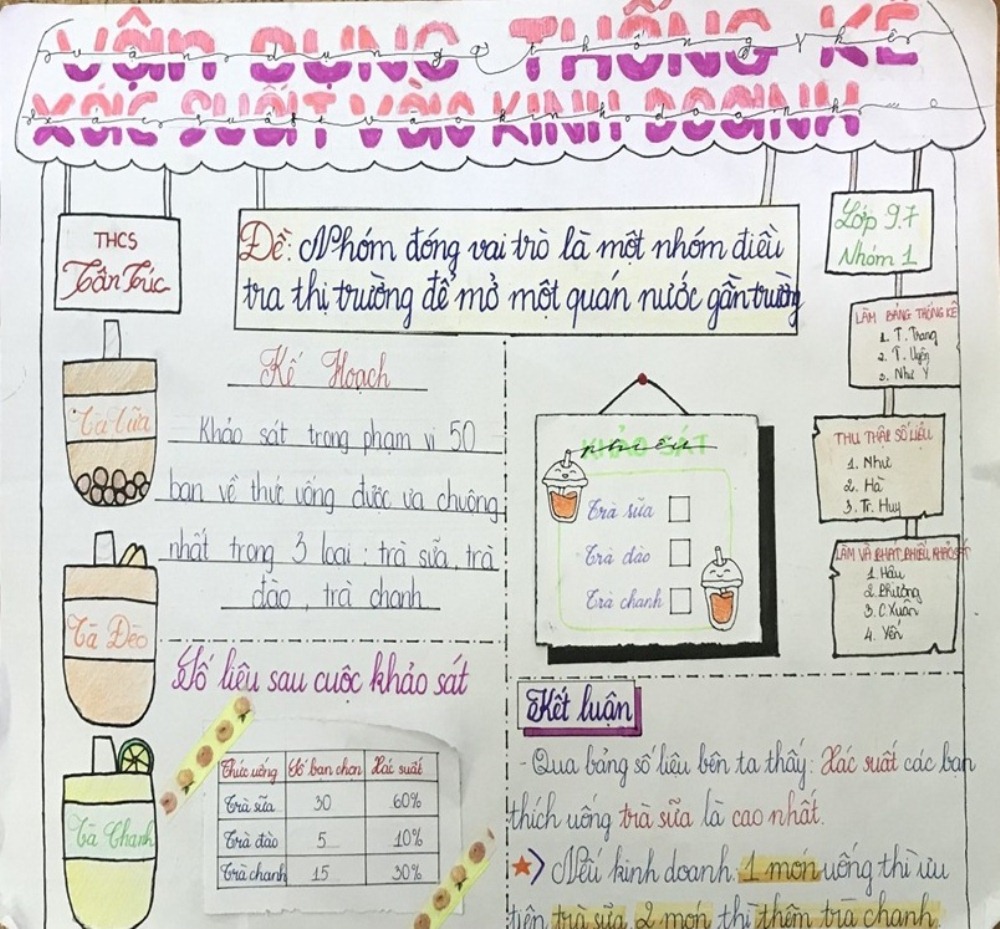 VẬN DỤNG THỐNG KÊ
XÁC SUẤT VÀO KINH DOANH
THCS
Tân Túc
Đề: Nhóm đóng vai trò là một nhóm điều
tra thị trường để mở một quán nước gần trường
Lớp 9.7
Nhóm 1
LÀM BẢNG THỐNG KÊ
1. T. Trang
2. T. Uyên
3. Như Ý
THU THẬP SỐ LIỆU
1. Như
2. Hà
3. Tr. Huy
LÀM VÀ PHÁT PHIẾU KHẢO SÁT
1. Hâu
2. Phương
3. C. Xuân
4. Yến
Kế Hoạch
Khảo sát trong phạm vi 50
bạn về thức uống được ưa chuộng
nhất trong 3 loại: trà sữa, trà
đào, trà chanh
Trà Sữa
Trà Đào
Trà Chanh
KHẢO SÁT
Trà sữa
Trà đào
Trà chanh
Số liệu sau cuộc khảo sát
Thức uống Số bạn chọn Xác suất
Trà sữa 30 60%
Trà đào 5 10%
Trà chanh 15 30%
Kết luận
- Qua bảng số liệu bên ta thấy: Xác suất các bạn
thích uống trà sữa là cao nhất.
Nếu kinh doanh: 1 món uống thì ưu
tiên trà sữa, 2 món thì thêm trà chanh.